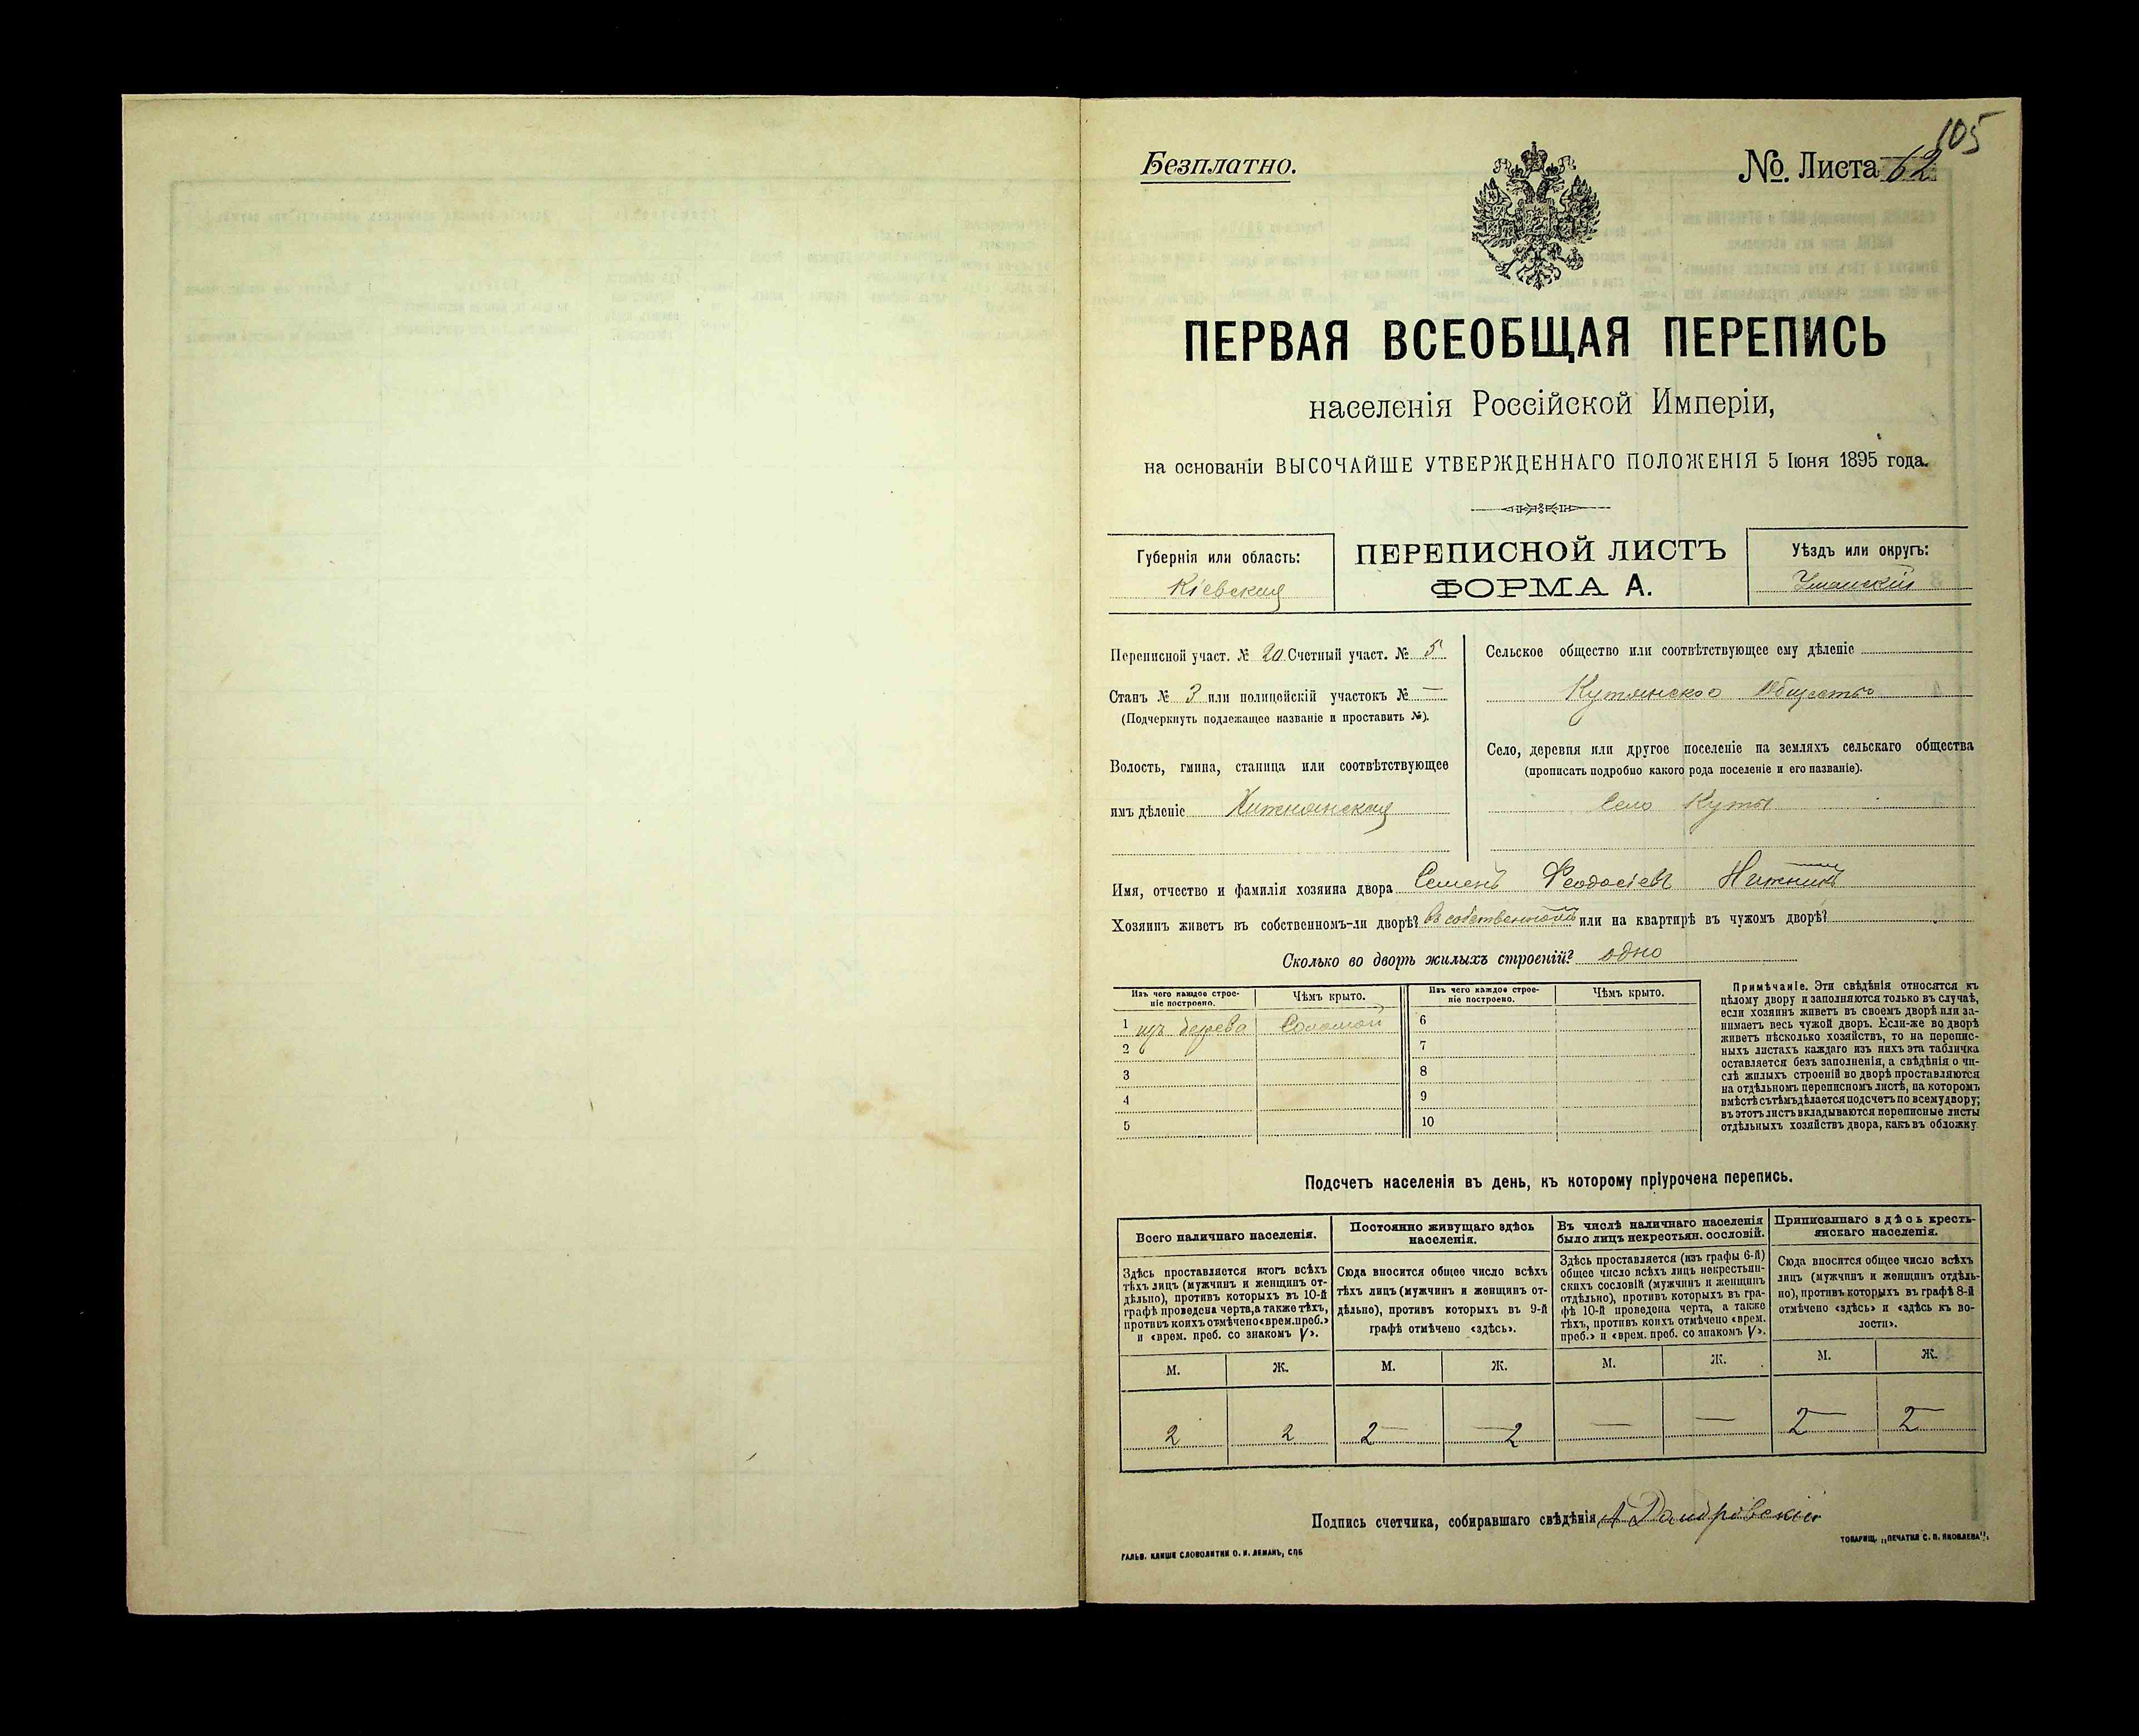 105
Безплатно.
№. Листа 62
ПЕРВАЯ ВСЕОБЩАЯ ПЕРЕПИСЬ
населенія Россійской Имперіи,
на основаніи ВЫСОЧАЙШЕ УТВЕРЖДЕННАГО ПОЛОЖЕНІЯ 5 Іюня 1895 года.
Губернія или область:
Кіевская
ПЕРЕПИСНОЙ ЛИСТЪ
ФОРМА А.
Уѣздъ или округъ:
Уманскій
Переписной участ. № 20 Счетный участ. № 5
Станъ № 3 или полицейскій участокъ № —
(Подчеркнуть подлежащее названіе и проставить №).
Волость, гмина, станица или соотвѣтствующее
имъ дѣленіе Хижнянская
Сельское общество или соотвѣтствующее ему дѣленіе
Кутянское Общество
Село, деревня или другое поселеніе на земляхъ сельскаго общества
(прописать подробно какого рода поселеніе и его названіе).
Село Куты
Имя, отчество и фамилія хозяина двора Семенъ Феодосіевъ
Хозяинъ живетъ въ собственномъ-ли дворѣ? въ собственномъ или на квартирѣ въ чужомъ дворѣ?
Сколько во дворѣ жилыхъ строеній? одно
Изъ чего каждое строе-
ніе построено.
Чѣмъ крыто.
Изъ чего каждое строе-
ніе построено.
Чѣмъ крыто.
1 изъ дерева Соломой 6
2 7
3 8
4 9
5 10
Примѣчаніе. Эти свѣдѣнія относятся къ
цѣлому двору и заполняются только въ случаѣ,
если хозяинъ живетъ въ своемъ дворѣ или за-
нимаетъ весь чужой дворъ. Если-же во дворѣ
живетъ нѣсколько хозяйствъ, то на перепис-
ныхъ листахъ каждаго изъ нихъ эта табличка
оставляется безъ заполненія, а свѣдѣнія о чи-
слѣ жилыхъ строеній во дворѣ проставляются
на отдѣльномъ переписномъ листѣ, на которомъ
вмѣстѣ съ тѣмъ дѣлается подсчетъ по всему двору;
въ этотъ листъ вкладываются переписные листы
отдѣльныхъ хозяйствъ двора, какъ въ обложку
Подсчетъ населенія въ день, къ которому пріурочена перепись.
Всего наличнаго населенія.
Здѣсь проставляется итогъ всѣхъ
тѣхъ лицъ (мужчинъ и женщинъ от-
дѣльно), противъ которыхъ въ 10-й
графѣ проведена черта, а также тѣхъ,
противъ коихъ отмѣчено «врем. преб.»
и «врем. преб. со знакомъ V».
Постоянно живущаго здѣсь
населенія.
Сюда вносится общее число всѣхъ
тѣхъ лицъ (мужчинъ и женщинъ от-
дѣльно), противъ которыхъ въ 9-й
графѣ отмѣчено «здѣсь».
Въ числѣ наличнаго населенія
было лицъ некрестьян. сословій.
Здѣсь проставляется (изъ графы 6-й)
общее число всѣхъ лицъ некрестьян-
скихъ сословій (мужчинъ и женщинъ
отдѣльно), противъ которыхъ въ гра-
фѣ 10-й проведена черта, а также
тѣхъ, противъ коихъ отмѣчено «врем.
преб.» и «врем. преб. со знакомъ V».
Приписаннаго здѣсь кресть-
янскаго населенія.
Сюда вносится общее число всѣхъ
лицъ (мужчинъ и женщинъ отдѣль-
но), противъ которыхъ въ графѣ 8-й
отмѣчено «здѣсь» и «здѣсь къ во-
лости».
М. Ж. М. Ж. М. Ж. М. Ж.
2 2 2 — — 2 — — 2 — 2 —
Подпись счетчика, собиравшаго свѣдѣнія
ГАЛЬВ. КЛИШЕ СЛОВОЛИТНИ О. И. ЛЕМАНЪ, СПБ
ТОВАРИЩ. „ПЕЧАТНЯ С. П. ЯКОВЛЕВА".